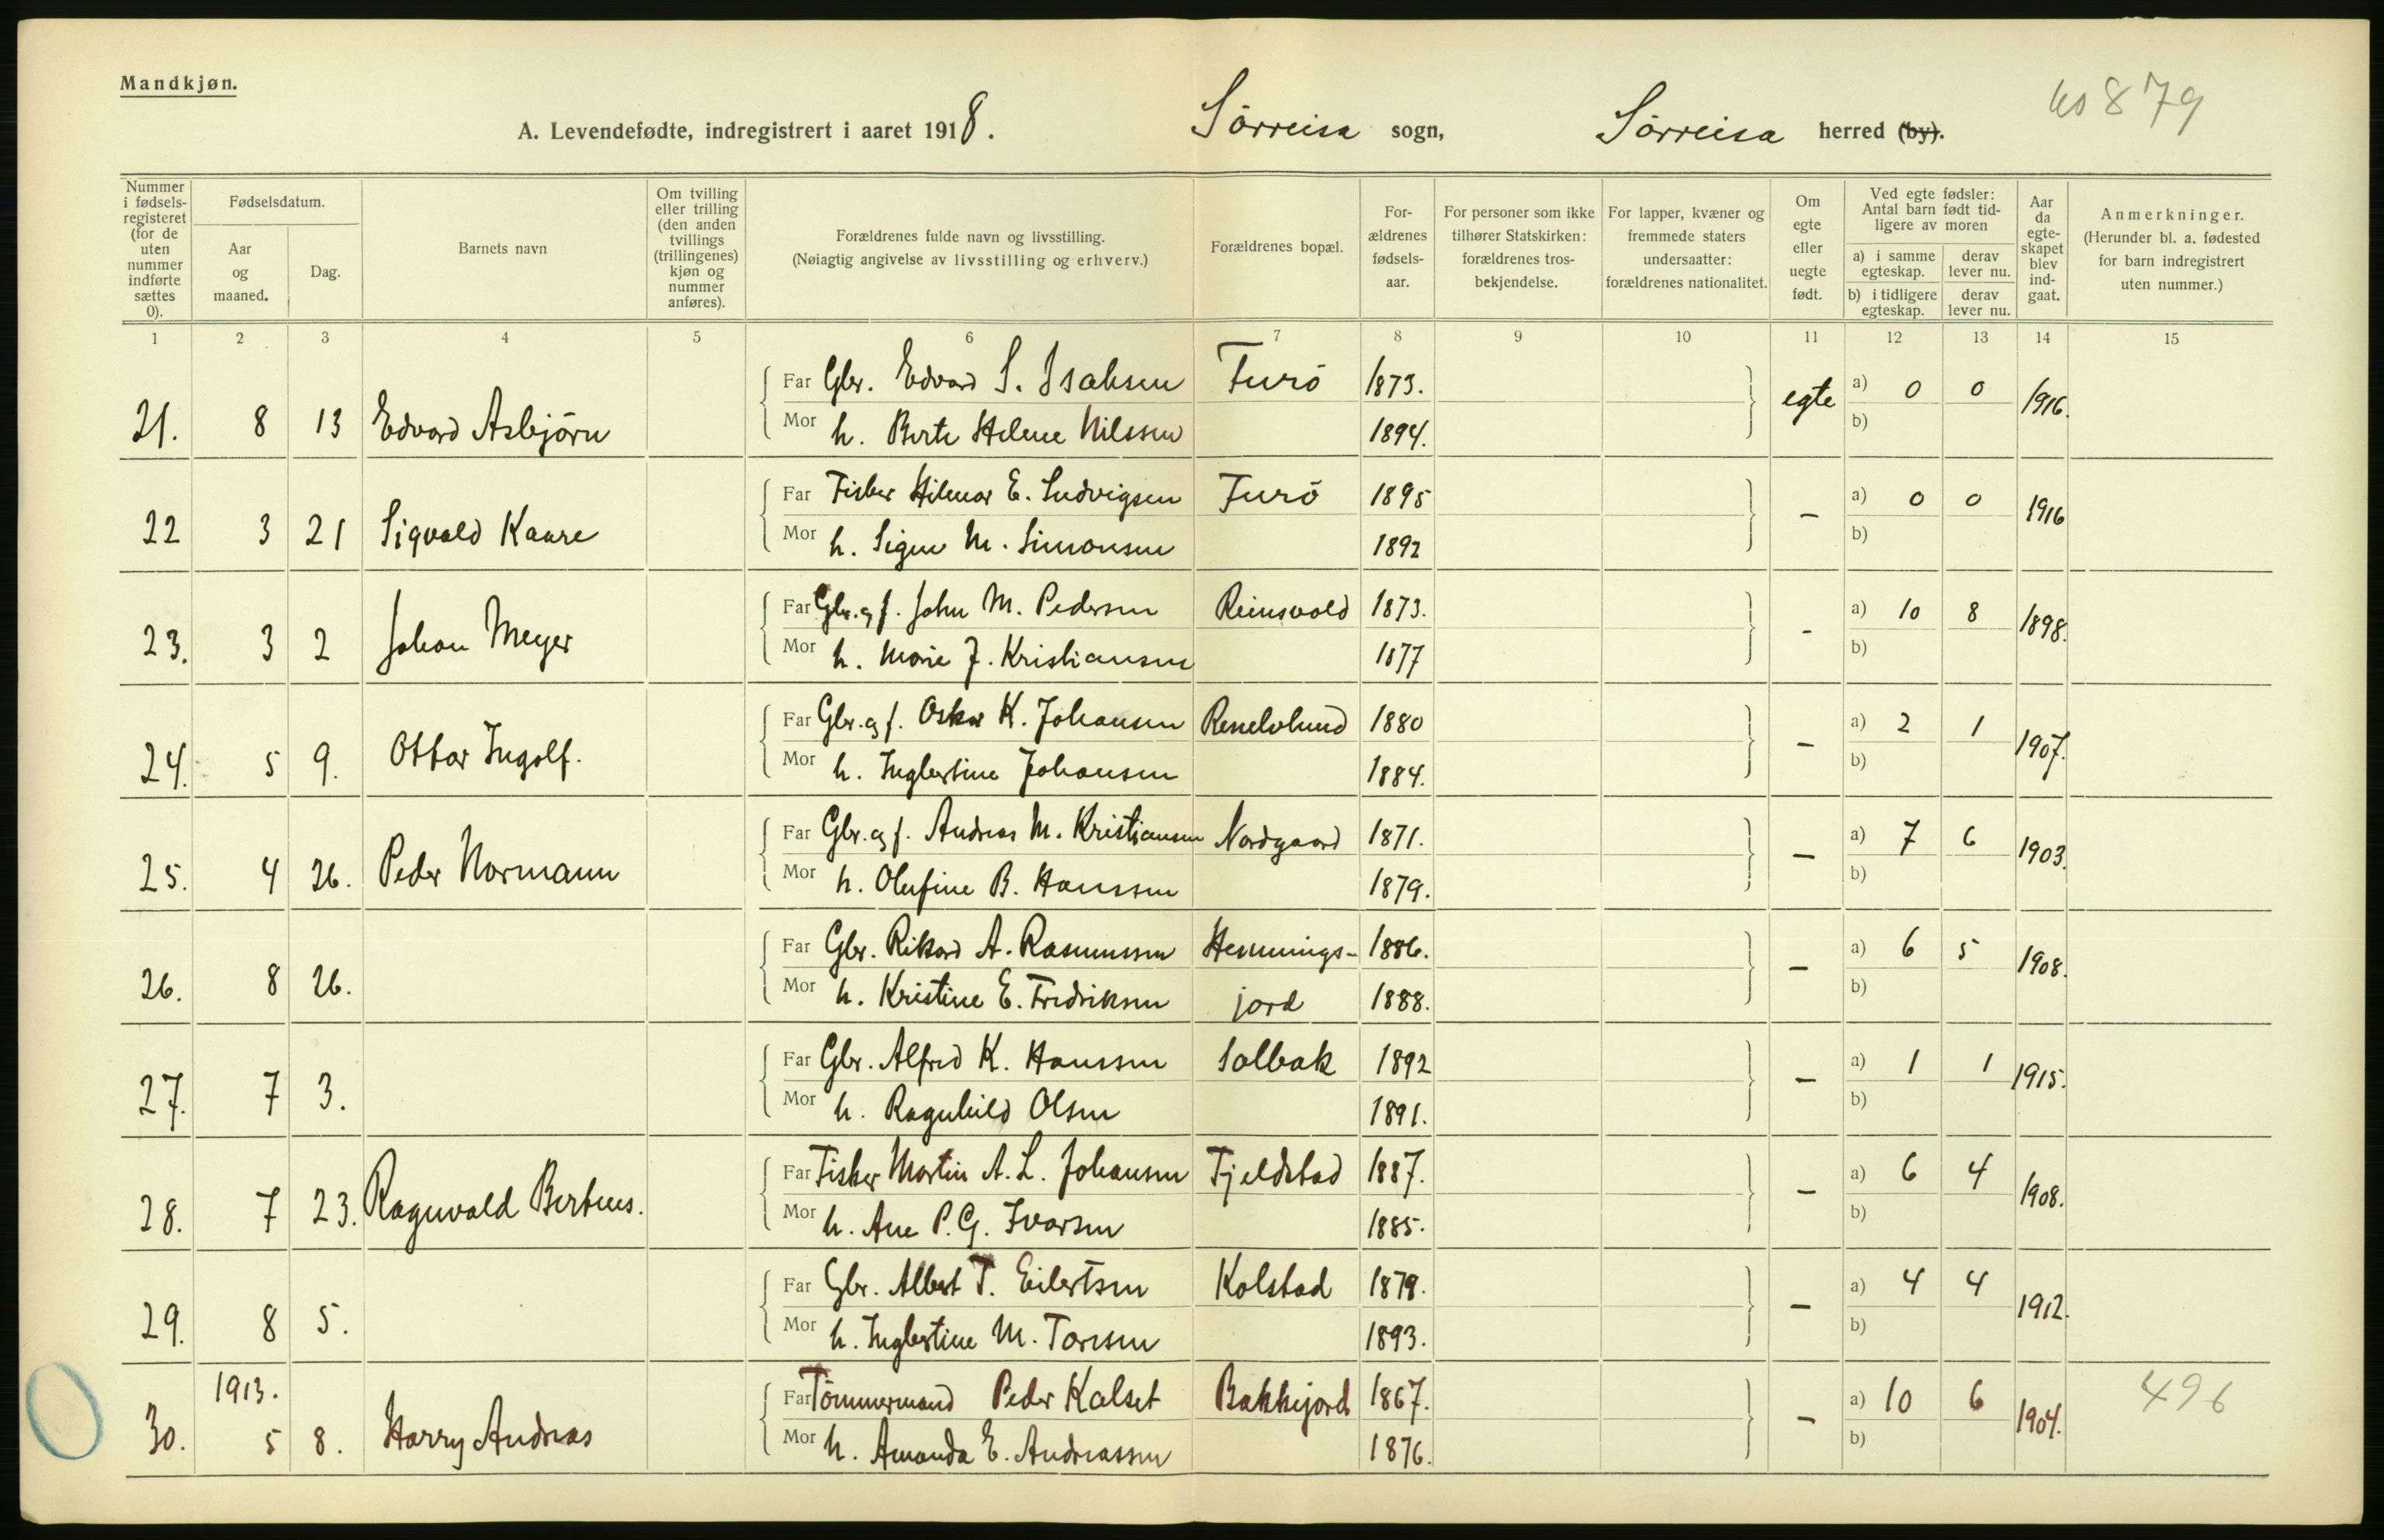 Mandkjøn.
A. Levendefødte, indregistrert i aaret 1918. Sörreisa sogn, Sörreisa herred (by).
879
Nummer i fødsels-registeret (for de uten nummer indførte sættes 0).
Fødselsdatum.
Aar og maaned.
Dag.
Barnets navn
Om tvilling eller trilling (den anden tvillings (trillingenes) kjøn og nummer anføres).
Forældrenes fulde navn og livsstilling.
(Nøiagtig angivelse av livsstilling og erhverv.)
Forældrenes bopæl.
For-ældrenes fødsels-aar.
For personer som ikke tilhører Statskirken: forældrenes tros-bekjendelse.
For lapper, kvæner og fremmede staters undersaatter: forældrenes nationalitet.
Om egte eller uegte født.
Ved egte fødsler: Antal barn født tid-ligere av moren
a) i samme egteskap. derav lever nu.
b) i tidligere egteskap. derav lever nu.
Aar da egte-skapet blev ind-gaat.
Anmerkninger.
(Herunder bl. a. fødested for barn indregistrert uten nummer.)
1 2 3 4 5 6 7 8 9 10 11 12 13 14 15
21. 8 13 Edvard Asbjörn Far Gbr. Edvard S. Isaksen Furö 1873. egte a) 0 0 1916.
Mor h. Berte Helene Nilssen 1894. b)
22 3 21 Sigvald Kaare Far Fisker Hilmar E. Ludvigsen Furö 1895 – a) 0 0 1916
Mor h. Signe M. Simonsen 1892 b)
23. 3 2 Johan Meyer Far Gbr. og f. John M. Pedersen Reinsvold 1873. - a) 10 8 1898.
Mor h. Marie J. Kristiansen 1877 b)
24. 5 9. Ottar Ingolf. Far Gbr. og f. Oskar K. Johansen 1880 – a) 2 1 1907.
Mor h. Ingbertine Johansen 1884. b)
25. 4 26. Peder Normann Far Gbr. og f. Andreas M. Kristiansen Nordgaard 1871. – a) 7 6 1903.
Mor h. Olufine B. Hanssen 1879. b)
26. 8 26. Far Gbr. Rikard A. Rasmussen Hemmings- 1886. – a) 6 5 1908.
Mor h. Kristine E. Fredriksen jord 1888. b)
27. 7 3. Far Gbr. Alfred K. Hanssen Solbak 1892 – a) 1 1 1915.
Mor h. Ragnhild Olsen 1891. b)
28. 7 23. Ragnvald Berteus. Far Fisker Martin A. L. Johansen Fjeldstad 1887. – a) 6 4 1908.
Mor h. Ane P. G. Ivarsen 1885. b)
29. 8 5. Far Gbr. Albert T. Eilertsen Kolstad 1879. – a) 4 4 1912.
Mor h. Ingbertine M. Toresen 1893. b)
1913.
30. 5 8. Harry Andreas Far Tömmermand Peder Kalset Bakkejord 1867. – a) 10 6 1904. 496
Mor h. Amanda E. Andreassen 1876. b)